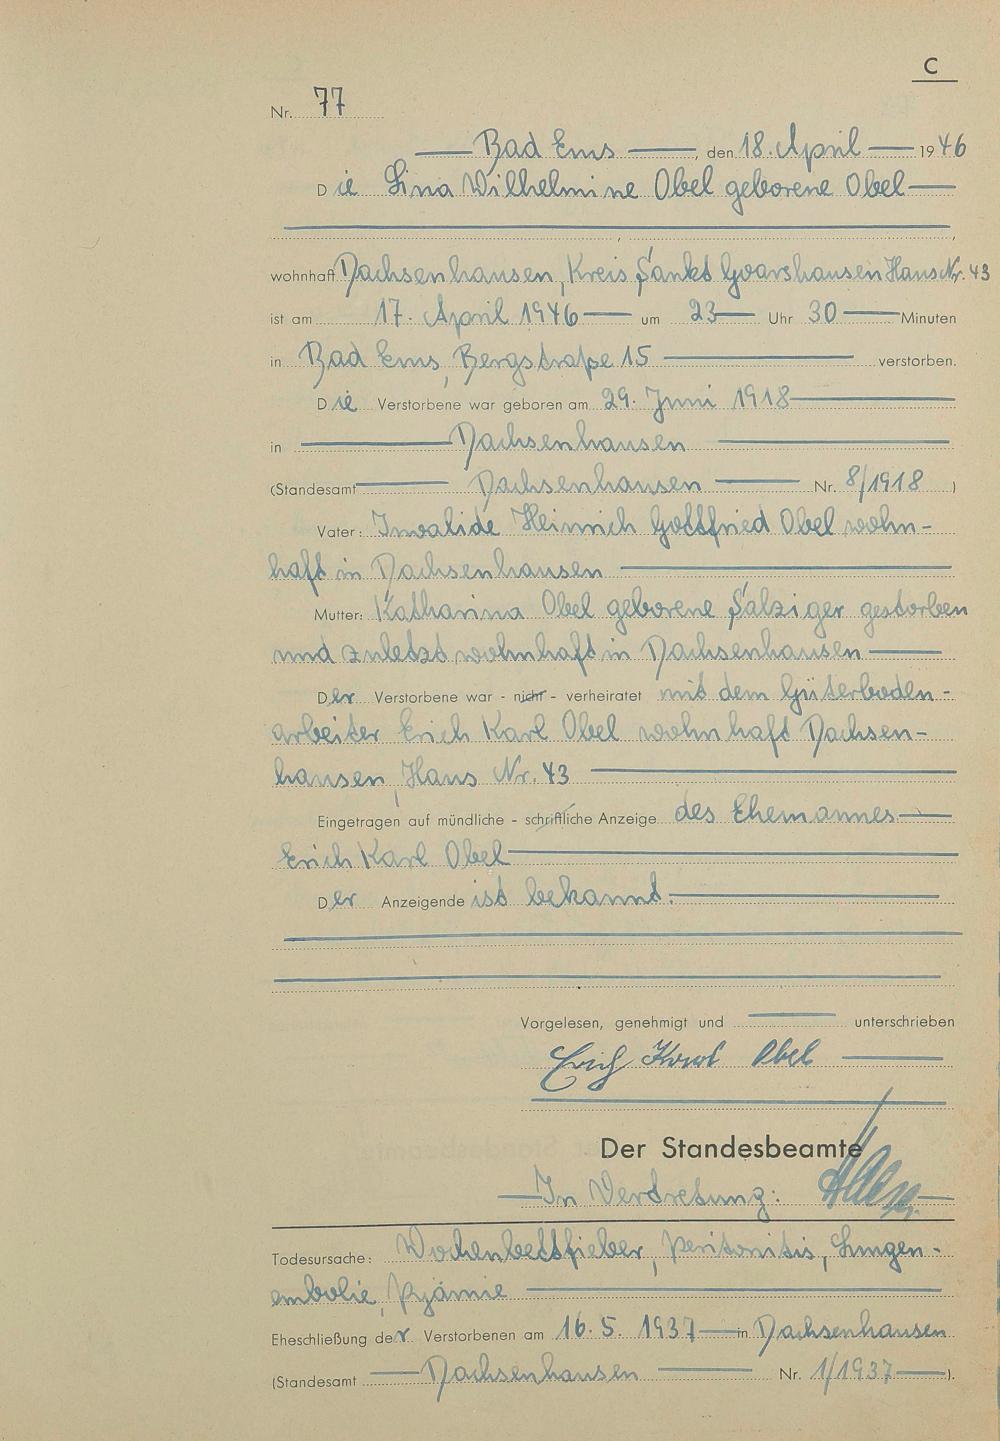 C
Nr. 77
Bad Ems, den 18. April 1946
Die Lina Wilhelmine Obel geborene Obel
wohnhaft Dachsenhausen, Kreis Sankt Goarshausen Haus Nr. 43
ist am 17. April 1946 um 23 Uhr 30 Minuten
in Bad Ems, Bergstraße 15 verstorben.
Die Verstorbene war geboren am 29. Juni 1918
in Dachsenhausen
(Standesamt Dachsenhausen Nr. 8/1918)
Vater: Invalide Heinrich Gottfried Obel wohn-
haft in Dachsenhausen
Mutter: Katharina Obel geborene Salziger gestorben
und zuletzt wohnhaft in Dachsenhausen
Der Verstorbene war - nicht - verheiratet mit dem Güterboden-
arbeiter Erich Karl Obel wohnhaft Dachsen-
hausen, Haus Nr. 43
Eingetragen auf mündliche - schriftliche Anzeige des Ehemannes
Erich Karl Obel
Der Anzeigende ist bekannt.
Vorgelesen, genehmigt und unterschrieben
Erich Karl Obel
Der Standesbeamte
In Vertretung:
Todesursache: Wochenbettfieber, Peritonitis, Lungen-
embolie, Pyämie
Eheschließung der Verstorbenen am 16. 5. 1937 in Dachsenhausen
(Standesamt Dachsenhausen Nr. 1/1937).